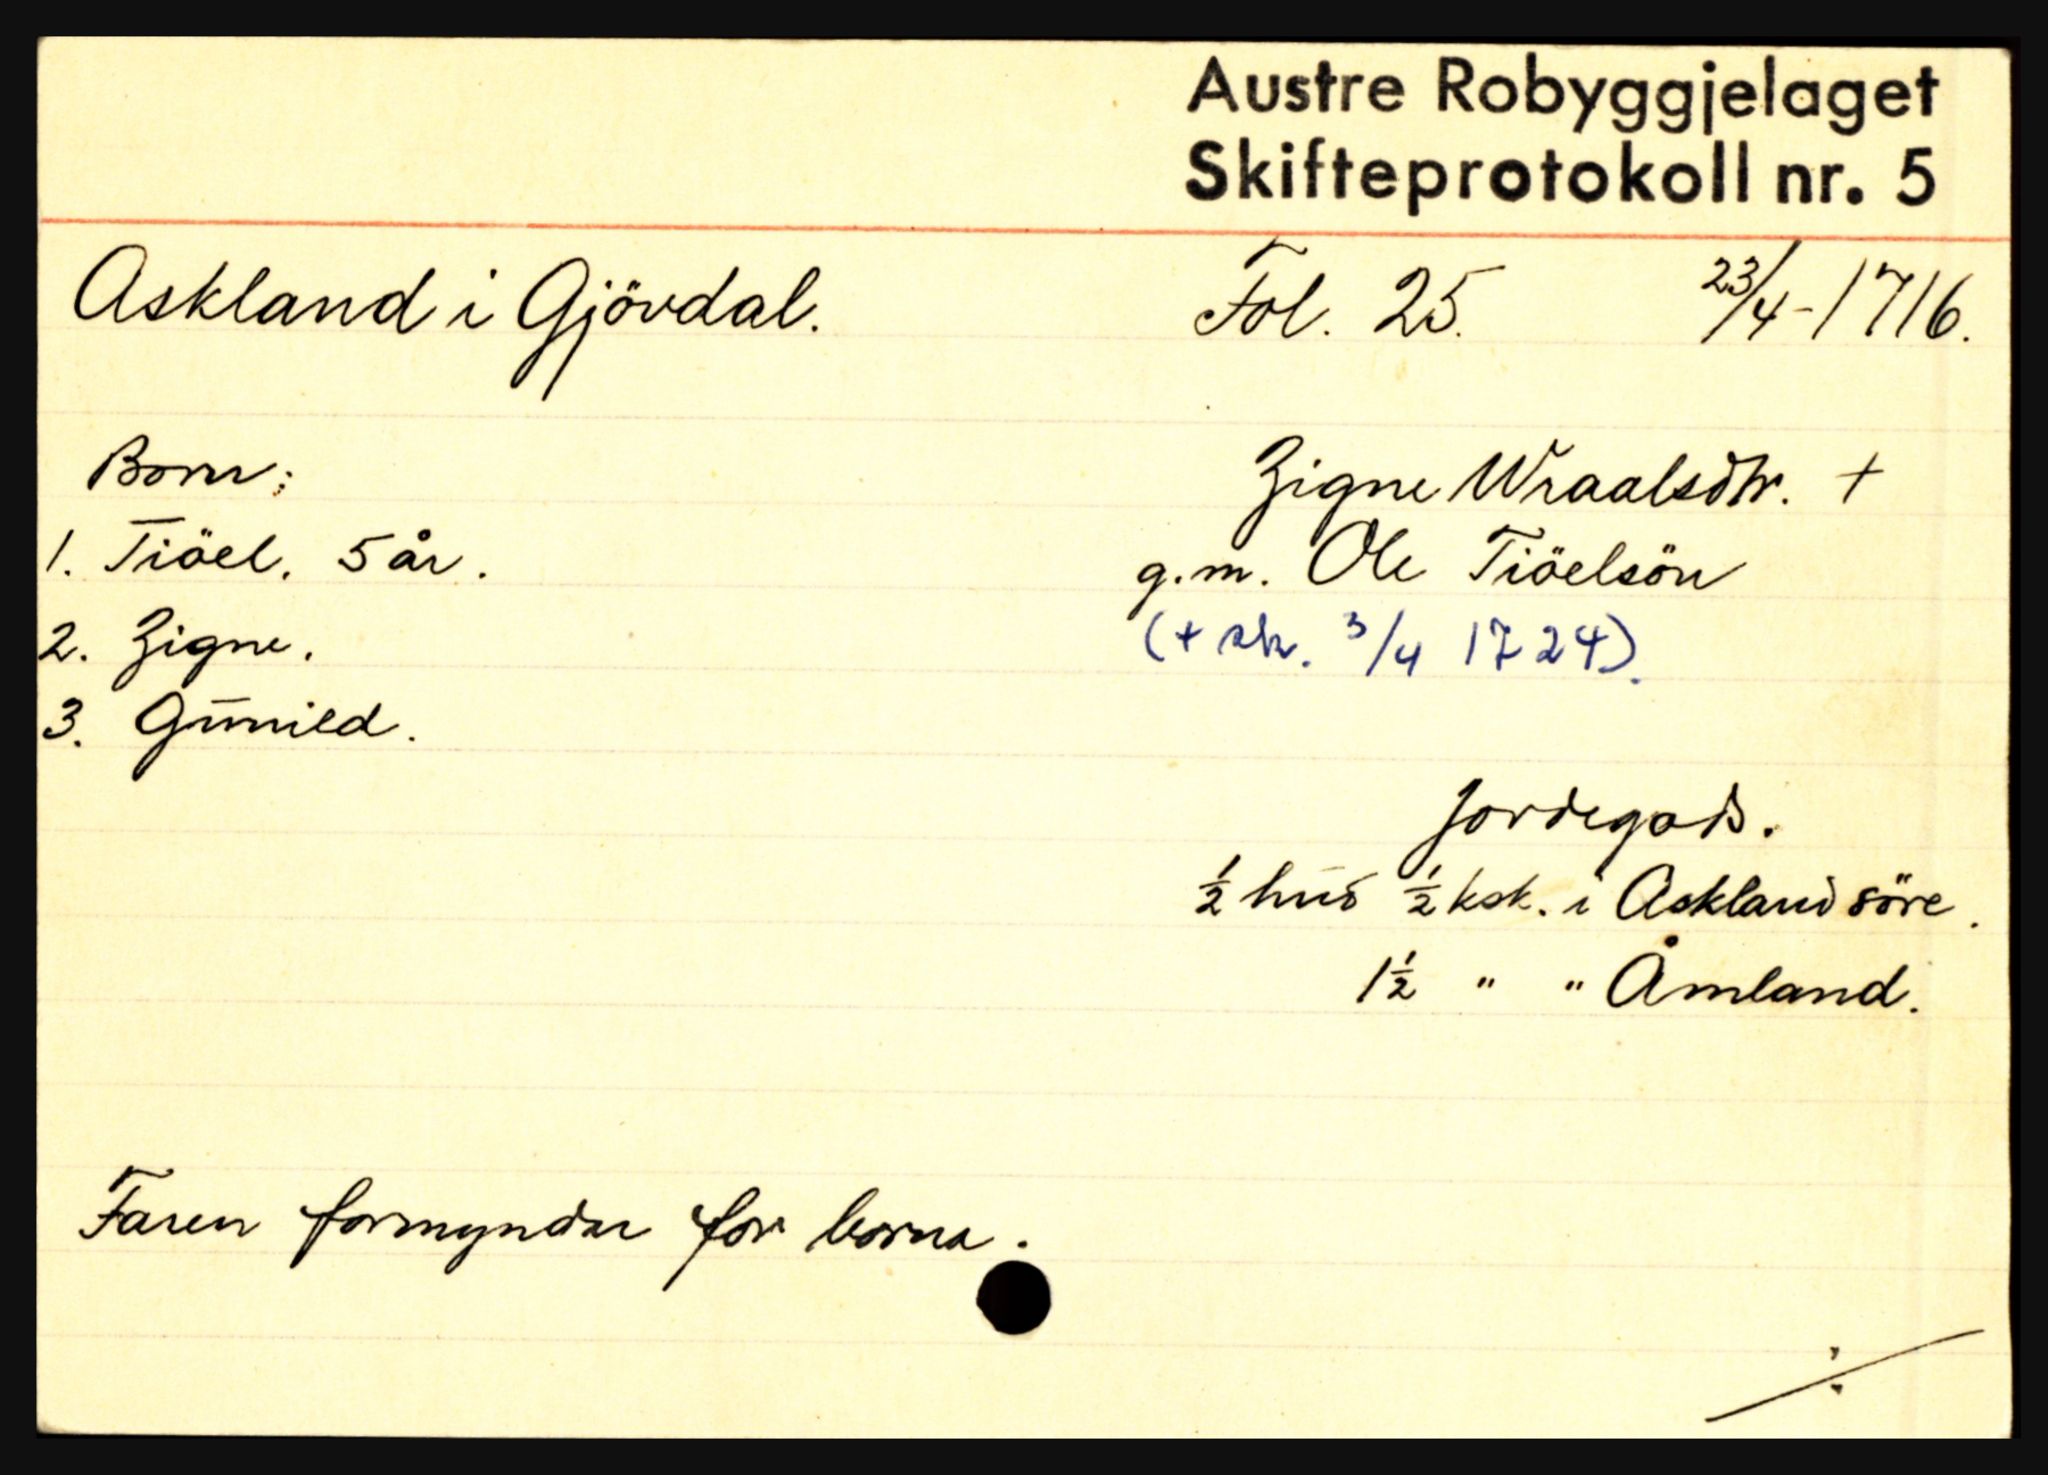 Austre Robyggjelaget
Skifteprotokoll nr. 5
Askland i Gjövdal. Fol. 25. 23/4-1716.
Born:
1. Tiöel. 5 år.
2. Zigne.
3. Gunild.
Zigne Wraalsdtr. +
g.m. Ole Tiöelsön
(+ sk. 3/4 1724).
Jordegods.
½ hud ½ ksk. i Askland söre.
1½ " " Åmland.
Faren formyndar for borna.